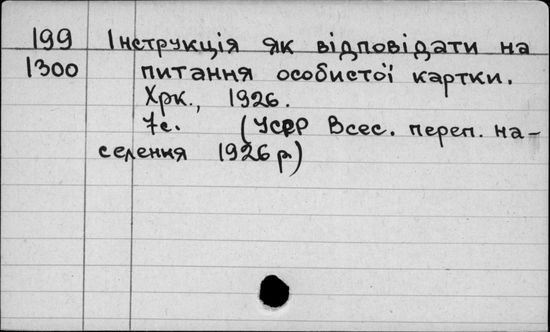 199 Інструкція як відповідати на
1300 питання особистої картки.
Хрк., 1926.
7с. (УСРР Всес. переп. на-
селення 1926 р.)